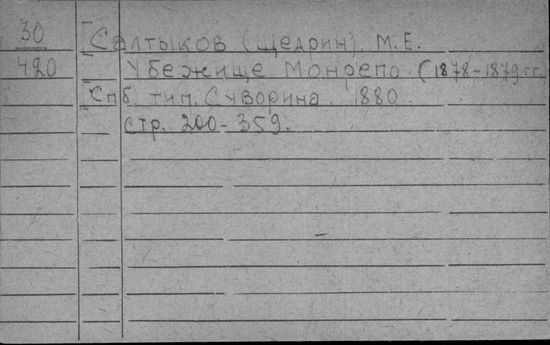 30 [Салтыков (Щедрин). М.Е.
420 Убежище Монрепо. (1878-1879 гг.
[Спб. тип. Суворина. 1880.
стр. 200-359.